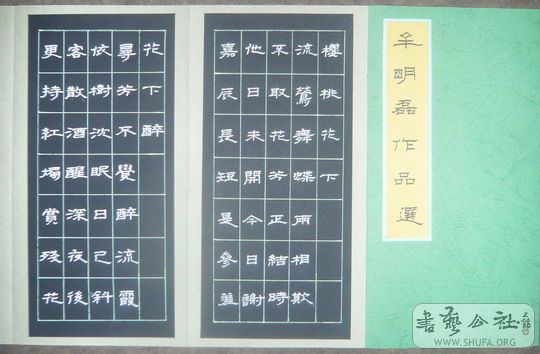 牟明磊作品選
櫻桃花下
流鶯舞蝶兩相欺
不取花芳正結時
他日未開今日謝
嘉辰長短是參差
花下醉
尋芳不覺醉流霞
依樹沈眠日已斜
客散酒醒深夜後
更持紅燭賞殘花
書藝公社
WWW.SHUFA.ORG